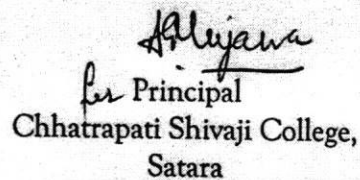 for Principal
Chhatrapati Shivaji College,
Satara